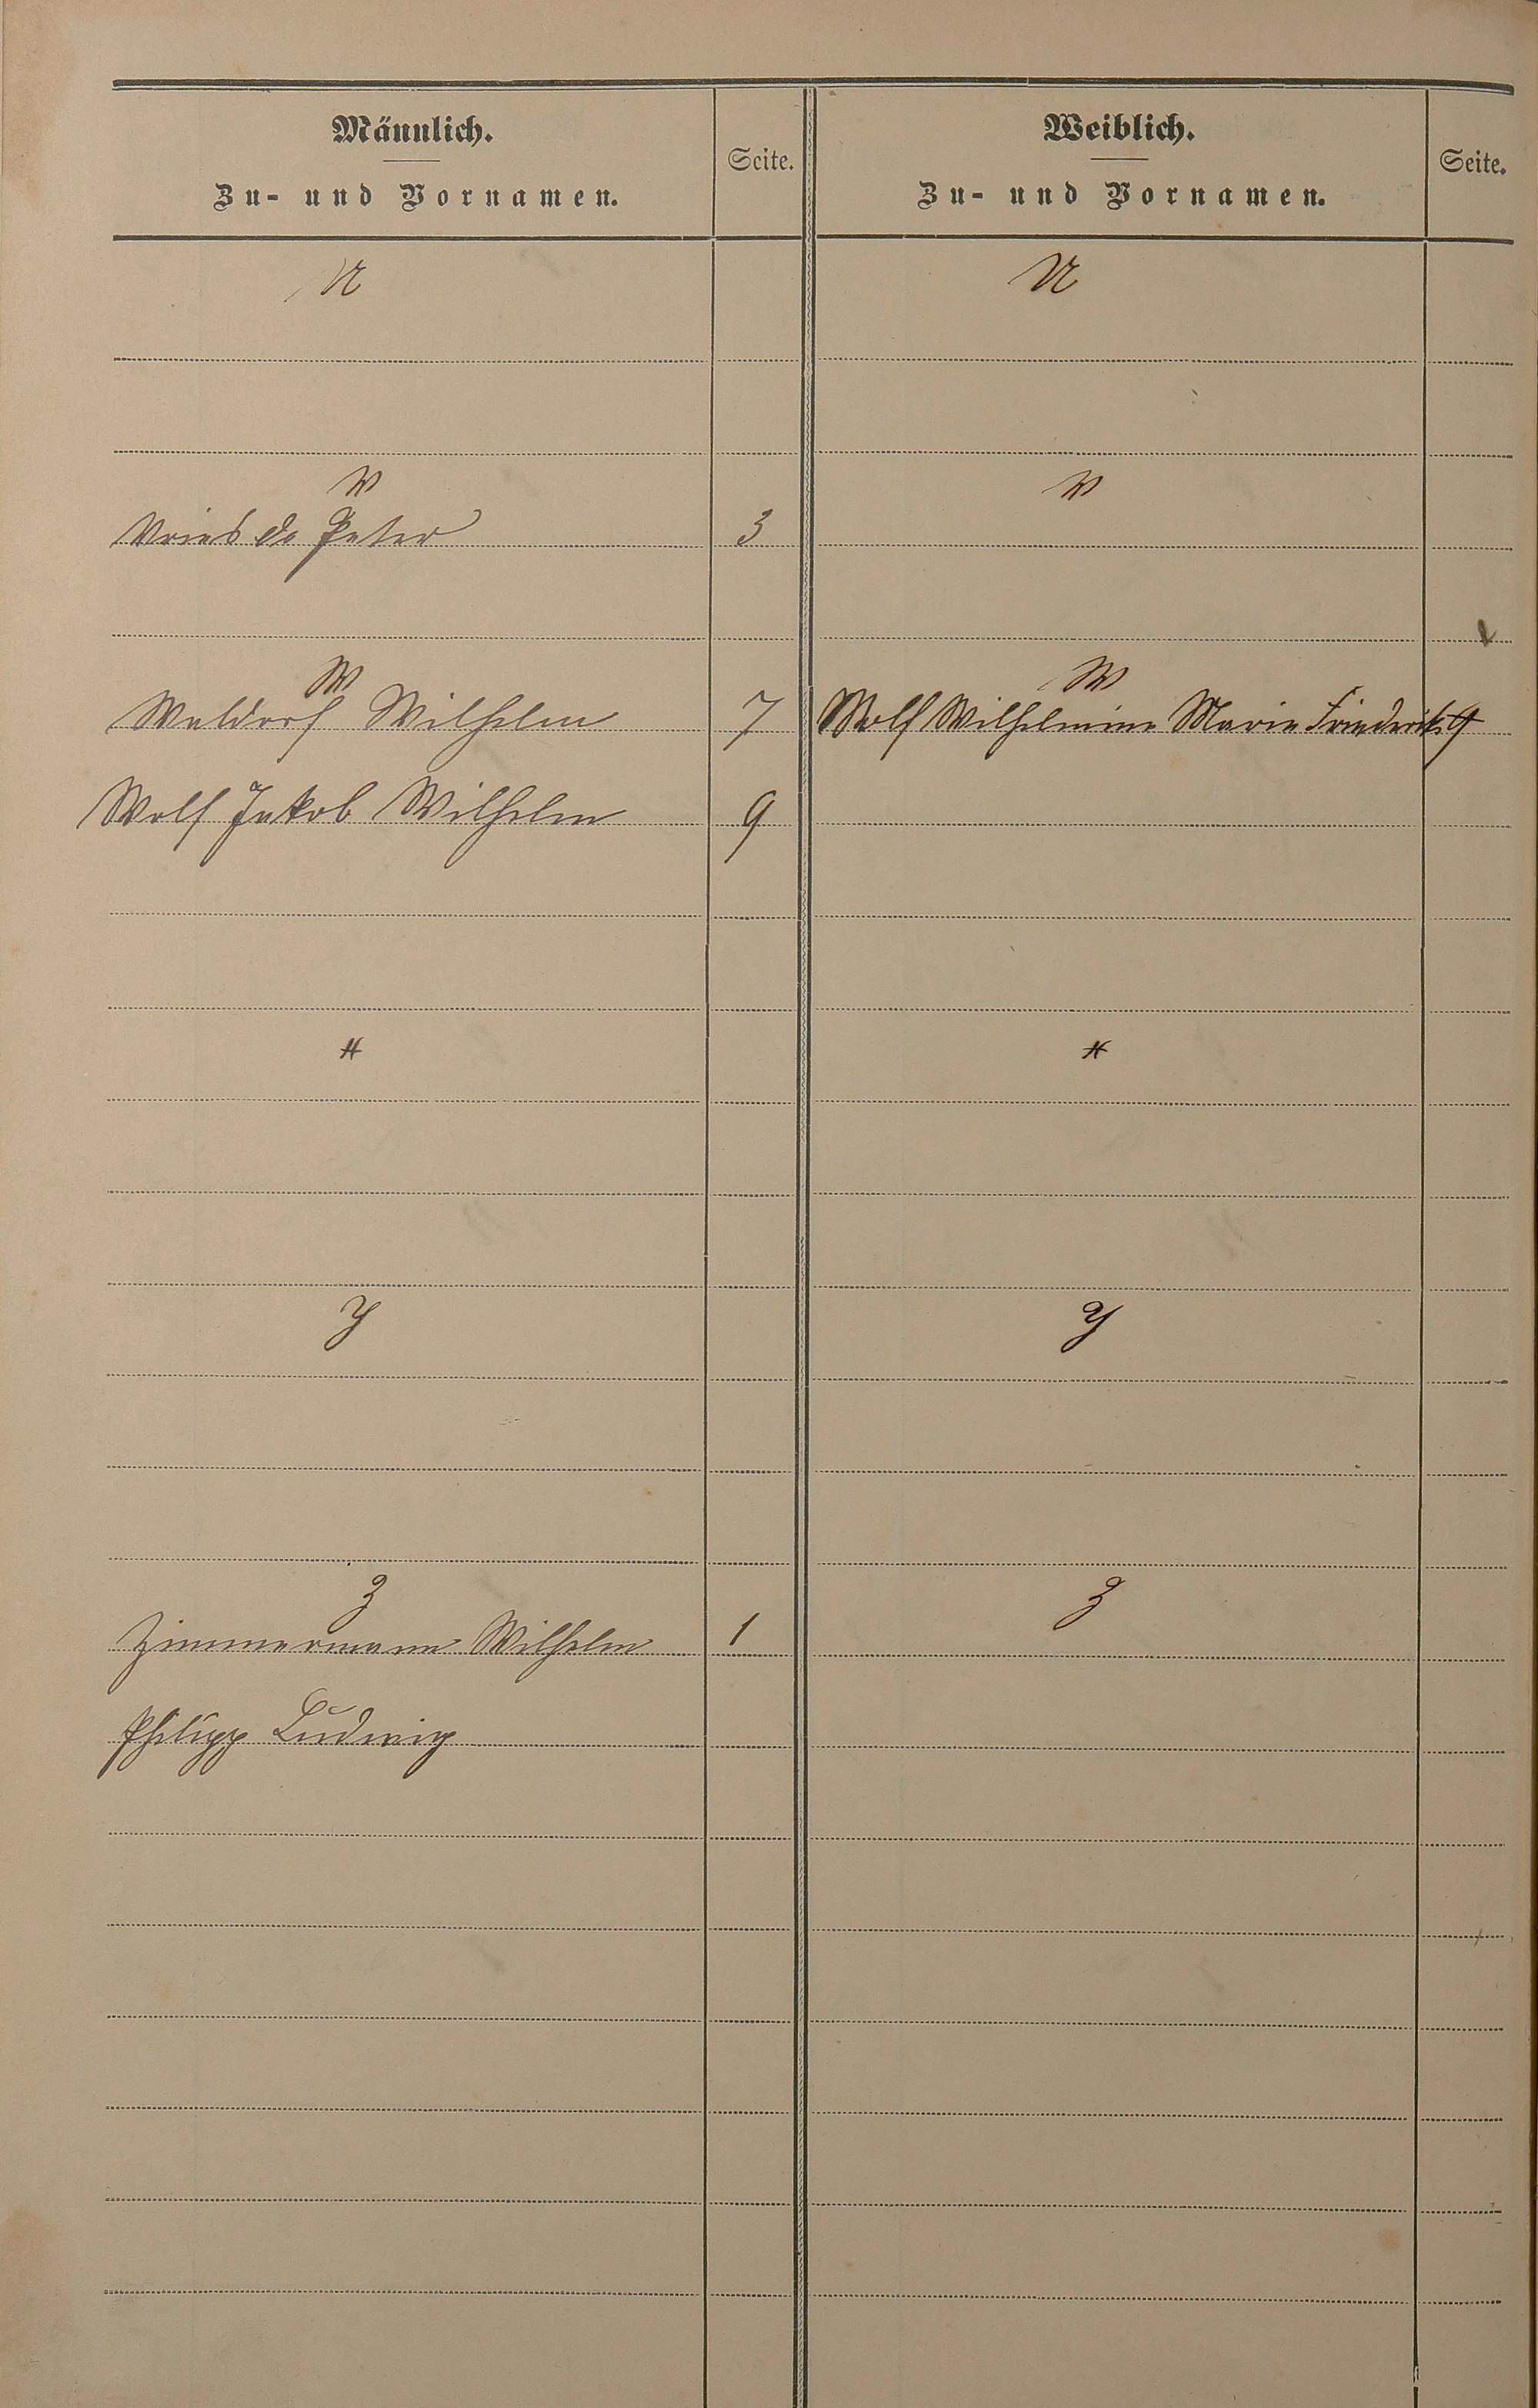 Männlich.
Zu- und Vornamen.
Seite.
Weiblich.
Zu- und Vornamen.
Seite.
U
U
V
V
Vries de Peter 3
W
W
Waldorf Wilhelm 7
Wolf Wilhelmine Marie Friederike 9
Wolf Jakob Wilhelm 9
X
X
Y
Y
Z
Z
Zimmermann Wilhelm 1
Philipp Ludwig